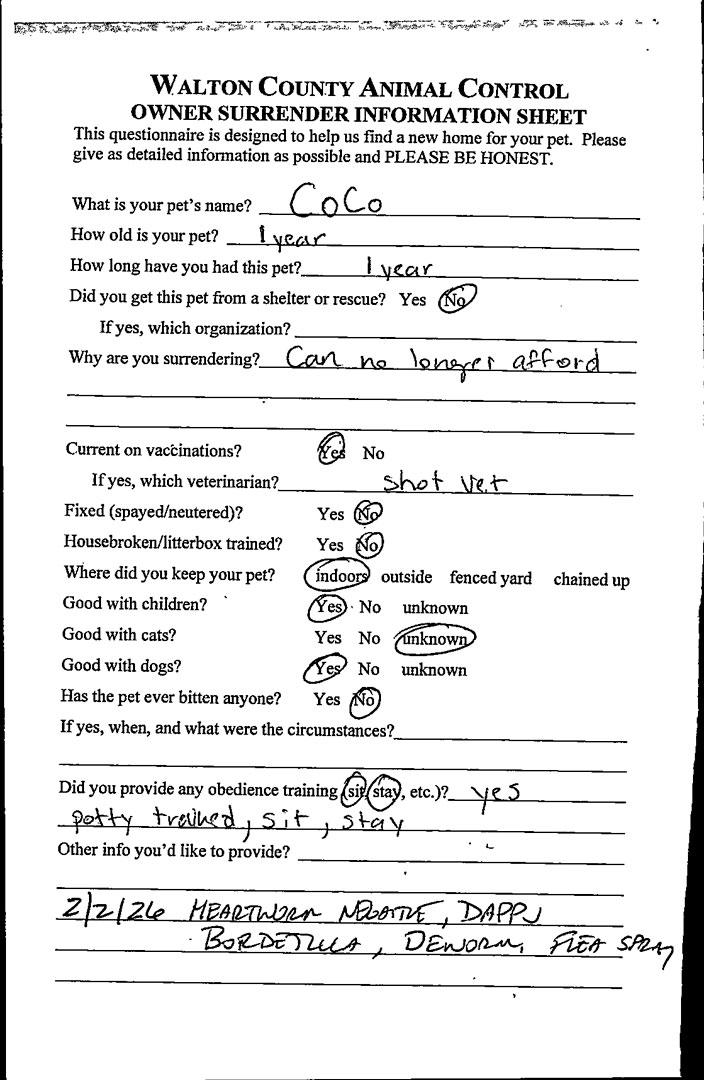 WALTON COUNTY ANIMAL CONTROL
OWNER SURRENDER INFORMATION SHEET
This questionnaire is designed to help us find a new home for your pet. Please
give as detailed information as possible and PLEASE BE HONEST.
What is your pet's name? CoCo
How old is your pet? 1 year
How long have you had this pet? 1 year
Did you get this pet from a shelter or rescue? Yes No
If yes, which organization?
Why are you surrendering? Can no longer afford
Current on vaccinations? Yes No
If yes, which veterinarian? shot vet
Fixed (spayed/neutered)? Yes No
Housebroken/litterbox trained? Yes No
Where did you keep your pet? indoors outside fenced yard chained up
Good with children? Yes No unknown
Good with cats? Yes No unknown
Good with dogs? Yes No unknown
Has the pet ever bitten anyone? Yes No
If yes, when, and what were the circumstances?
Did you provide any obedience training (sit, stay, etc.)? yes
potty trained, sit, stay
Other info you'd like to provide?
2/2/26 HEARTWORM NEGATIVE, DAPPV
BORDETELLA, DEWORM, FLEA SPRAY